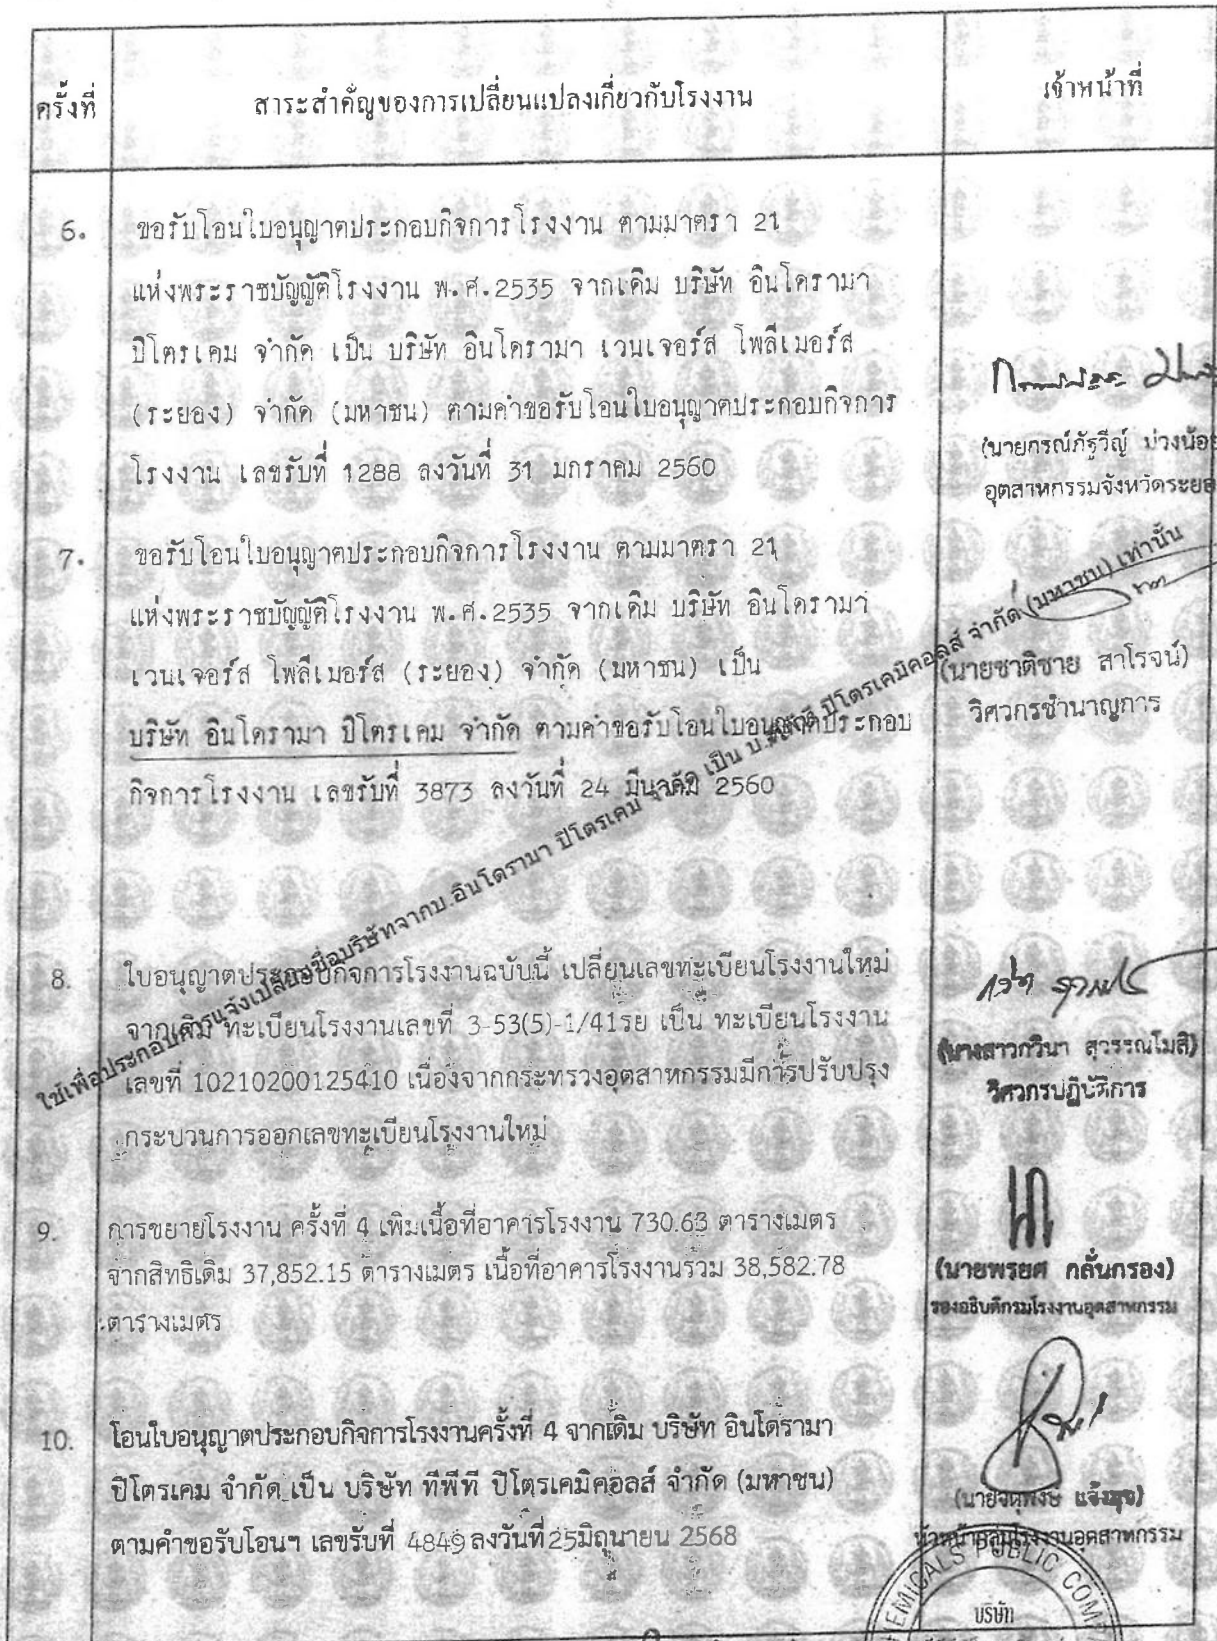 ครั้งที่
สาระสำคัญของการเปลี่ยนแปลงเกี่ยวกับโรงงาน
เจ้าหน้าที่
6. ขอรับโอนใบอนุญาตประกอบกิจการโรงงาน ตามมาตรา 21
แห่งพระราชบัญญัติโรงงาน พ.ศ.2535 จากเดิม บริษัท อินโดรามา
ปิโตรเคม จำกัด เป็น บริษัท อินโดรามา เวนเจอร์ส โพลีเมอร์ส
(ระยอง) จำกัด (มหาชน) ตามคำขอรับโอนใบอนุญาตประกอบกิจการ
โรงงาน เลขรับที่ 1288 ลงวันที่ 31 มกราคม 2560
(นายกรณ์ภัฐวีญ์ ม่วงน้อย
อุตสาหกรรมจังหวัดระยอ
7. ขอรับโอนใบอนุญาตประกอบกิจการโรงงาน ตามมาตรา 21
แห่งพระราชบัญญัติโรงงาน พ.ศ.2535 จากเดิม บริษัท อินโดรามา
เวนเจอร์ส โพลีเมอร์ส (ระยอง) จำกัด (มหาชน) เป็น
บริษัท อินโดรามา ปิโตรเคม จำกัด ตามคำขอรับโอนใบอนุญาตประกอบ
กิจการโรงงาน เลขรับที่ 3873 ลงวันที่ 24 มีนาคม 2560
(นายชาติชาย สาโรจน์)
วิศวกรชำนาญการ
ใช้เพื่อประกอบการแจ้งเปลี่ยนชื่อบริษัทจากบ.อินโดรามา ปิโตรเคม จำกัด เป็น บ.ทีพีที ปิโตรเคมิคอลส์ จำกัด (มหาชน) เท่านั้น
8. ใบอนุญาตประกอบกิจการโรงงานฉบับนี้ เปลี่ยนเลขทะเบียนโรงงานใหม่
จากเดิม ทะเบียนโรงงานเลขที่ 3-53(5)-1/41รย เป็น ทะเบียนโรงงาน
เลขที่ 10210200125410 เนื่องจากกระทรวงอุตสาหกรรมมีการปรับปรุง
กระบวนการออกเลขทะเบียนโรงงานใหม่
(นางสาวกวินา สุวรรณโมสิ)
วิศวกรปฏิบัติการ
9. การขยายโรงงาน ครั้งที่ 4 เพิ่มเนื้อที่อาคารโรงงาน 730.63 ตารางเมตร
จากสิทธิเดิม 37,852.15 ตารางเมตร เนื้อที่อาคารโรงงานรวม 38,582.78
ตารางเมตร
(นายพรยศ กลั่นกรอง)
รองอธิบดีกรมโรงงานอุตสาหกรรม
10. โอนใบอนุญาตประกอบกิจการโรงงานครั้งที่ 4 จากเดิม บริษัท อินโดรามา
ปิโตรเคม จำกัด เป็น บริษัท ทีพีที ปิโตรเคมิคอลส์ จำกัด (มหาชน)
ตามคำขอรับโอนฯ เลขรับที่ 4849 ลงวันที่ 25 มิถุนายน 2568
(นายจตุพงษ์ แจ้งสุข)
หัวหน้ากลุ่มโรงงานอุตสาหกรรม
EMICALS PUBLIC COM
บริษัท